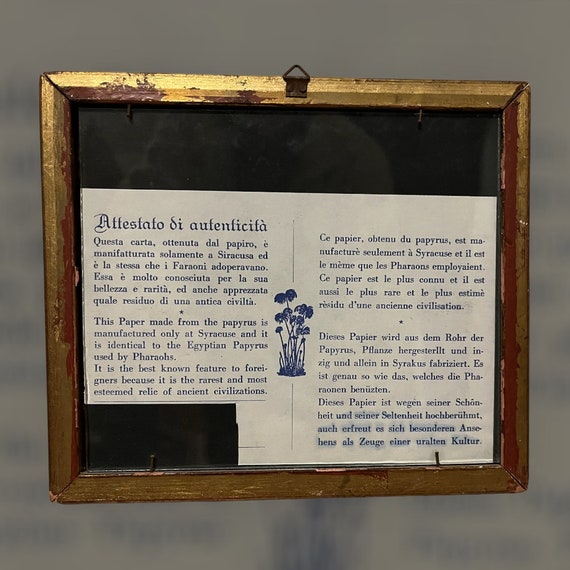 Attestato di autenticità
Questa carta, ottenuta dal papiro, è
manifatturata solamente a Siracusa ed
è la stessa che i Faraoni adoperavano.
Essa è molto conosciuta per la sua
bellezza e rarità, ed anche apprezzata
quale residuo di una antica civiltà.
*
This Paper made from the papyrus is
manufactured only at Syracuse and it
is identical to the Egyptian Papyrus
used by Pharaohs.
It is the best known feature to forei-
gners because it is the rarest and most
esteemed relic of ancient civilizations.
Ce papier, obtenu du papyrus, est ma-
nufacturè seulement à Syracuse et il est
le mème que les Pharaons employaient.
Ce papier est le plus connu et il est
aussi le plus rare et le plus estimè
rèsidu d'une ancienne civilisation.
*
Dieses Papier wird aus dem Rohr der
Papyrus, Pflanze hergesterllt und in-
zig und allein in Syrakus fabriziert. Es
ist genau so wie das, welches die Pha-
raonen benüzten.
Dieses Papier ist wegen seiner Schön-
heit und seiner Seltenheit hochberühmt,
auch erfreut es sich besonderen Anse-
hens als Zeuge einer uralten Kultur.